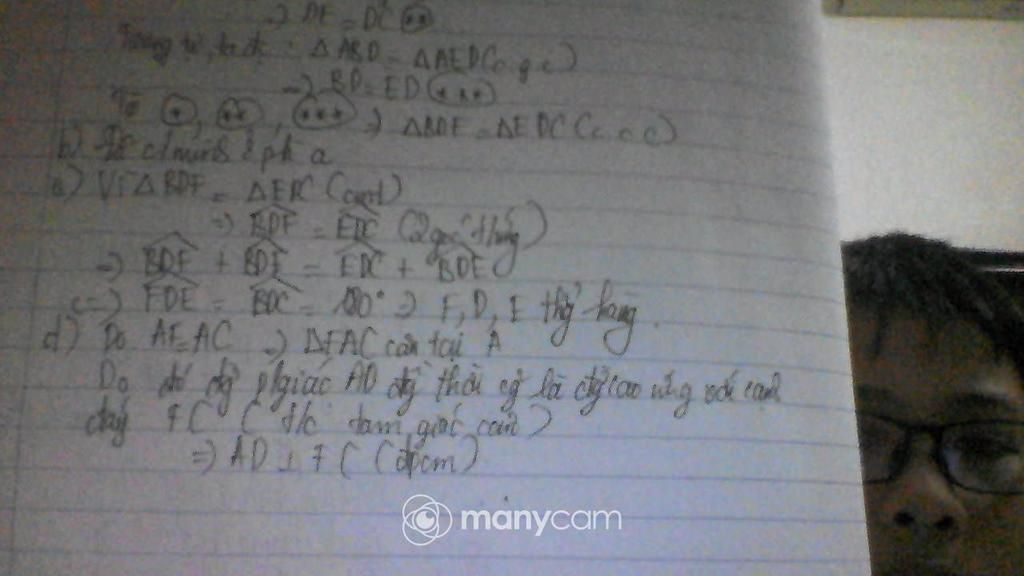 ⇒ AF = DC (**)
Tương tự, ta đc : ΔABD = ΔAED (c g c)
⇒ BD = ED (***)
Từ (*), (**), (***) ⇒ ΔBDF = ΔEDC (c c c)
b) Đã c/minh ở ph a
c) Vì ΔBDF = ΔEDC (cmt)
⇒ BDF = EDC (2 góc t/ứng)
⇒ BDF + BDE = EDC + BDE
⇒ FDE = BDC = 180° ⇒ F, D, E thg hàng.
d) Do AF=AC ⇒ ΔFAC cân tại A
Do đó đg p/giác AD đg thời cg là đg cao ứng với cạnh
đáy FC ( t/c tam giác cân)
⇒ AD ⊥ FC (đpcm)
manycam